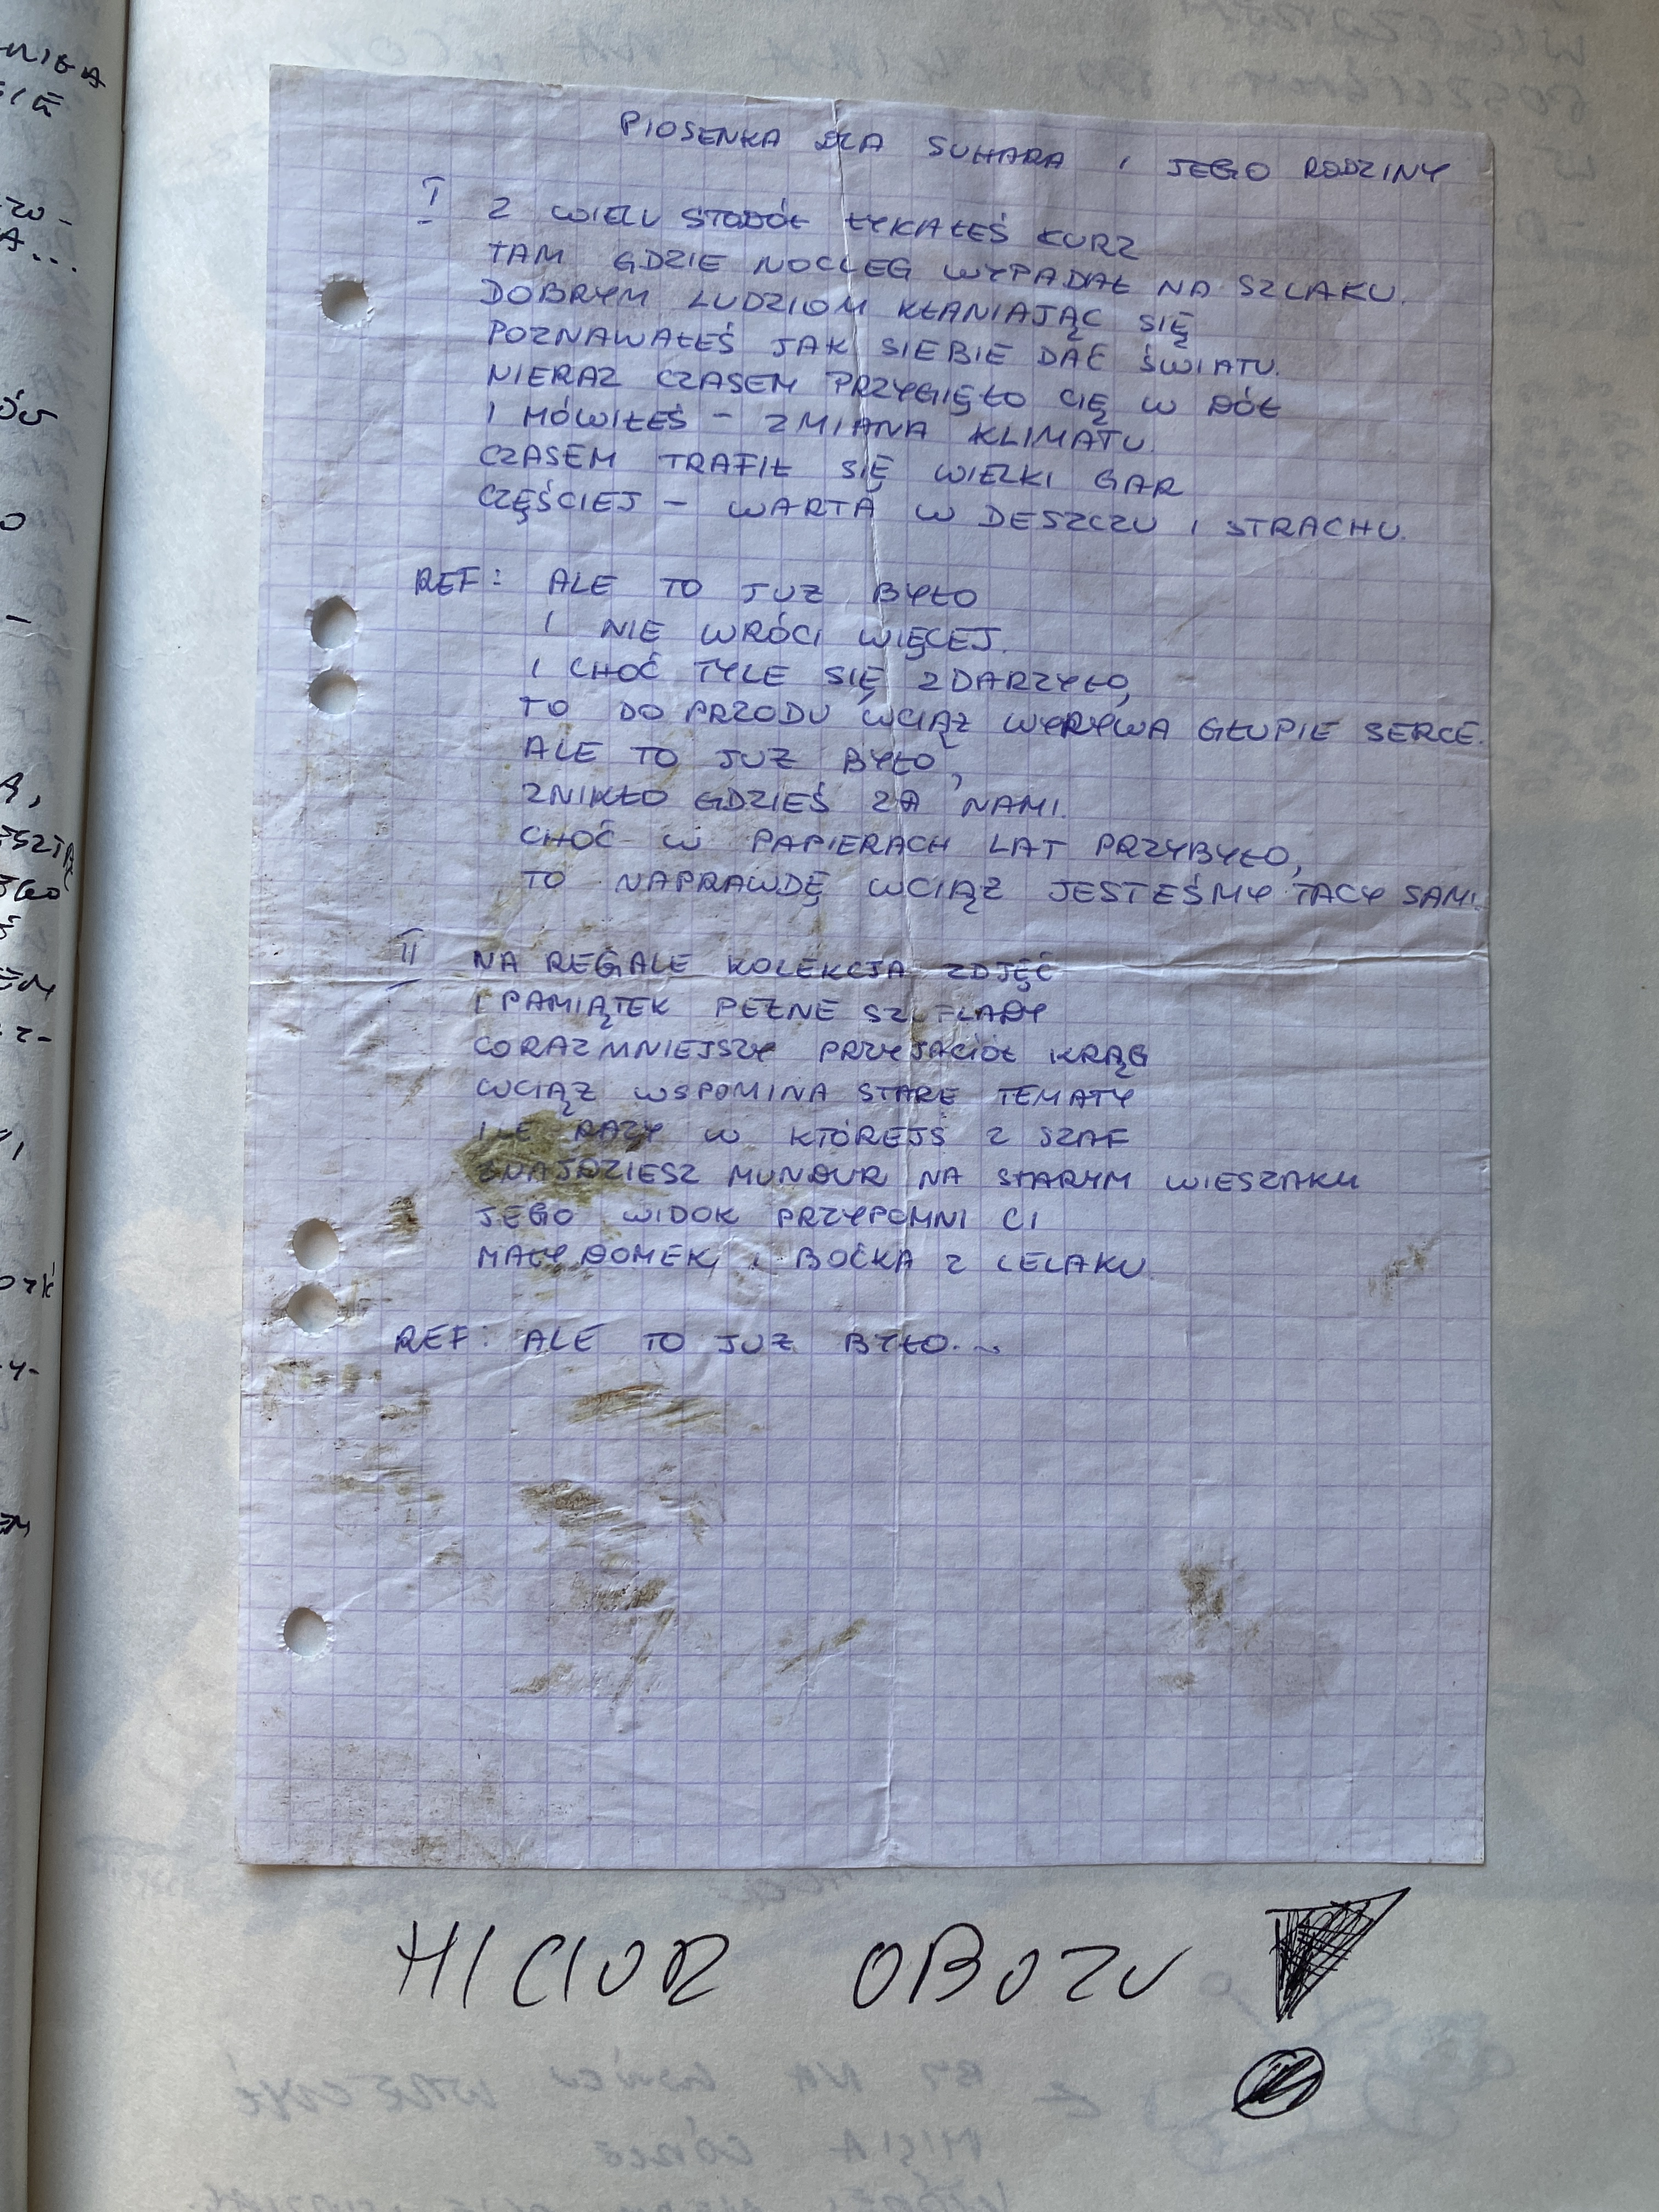 PIOSENKA DLA SUHARA I JEGO RODZINY
I Z WIELU STODÓŁ ŁYKAŁEŚ KURZ
TAM GDZIE NOCLEG WYPADAŁ NA SZLAKU.
DOBRYM LUDZIOM KŁANIAJĄC SIĘ
POZNAWAŁEŚ JAK SIEBIE DAĆ ŚWIATU.
NIERAZ CZASEM PRZYGIĘŁO CIĘ W DÓŁ
I MÓWIŁEŚ – ZMIANA KLIMATU.
CZASEM TRAFIŁ SIĘ WIELKI GAR
CZĘŚCIEJ – WARTA W DESZCZU I STRACHU.
REF: ALE TO JUŻ BYŁO
I NIE WRÓCI WIĘCEJ.
I CHOĆ TYLE SIĘ ZDARZYŁO,
TO DO PRZODU WCIĄŻ WYRYWA GŁUPIE SERCE.
ALE TO JUŻ BYŁO,
ZNIKŁO GDZIEŚ ZA NAMI.
CHOĆ W PAPIERACH LAT PRZYBYŁO,
TO NAPRAWDĘ WCIĄŻ JESTEŚMY TACY SAMI.
II NA REGALE KOLEKCJA ZDJĘĆ
I PAMIĄTEK PEŁNE SZUFLADY
CORAZ MNIEJSZY PRZYJACIÓŁ KRĄG
WCIĄŻ WSPOMINA STARE TEMATY
ILE RAZY W KTÓREJŚ Z SZAF
ZNAJDZIESZ MUNDUR NA STARYM WIESZAKU
JEGO WIDOK PRZYPOMNI CI
MAŁY DOMEK I BOĆKA Z LELAKU
REF: ALE TO JUŻ BYŁO...
HICIOR OBOZU !